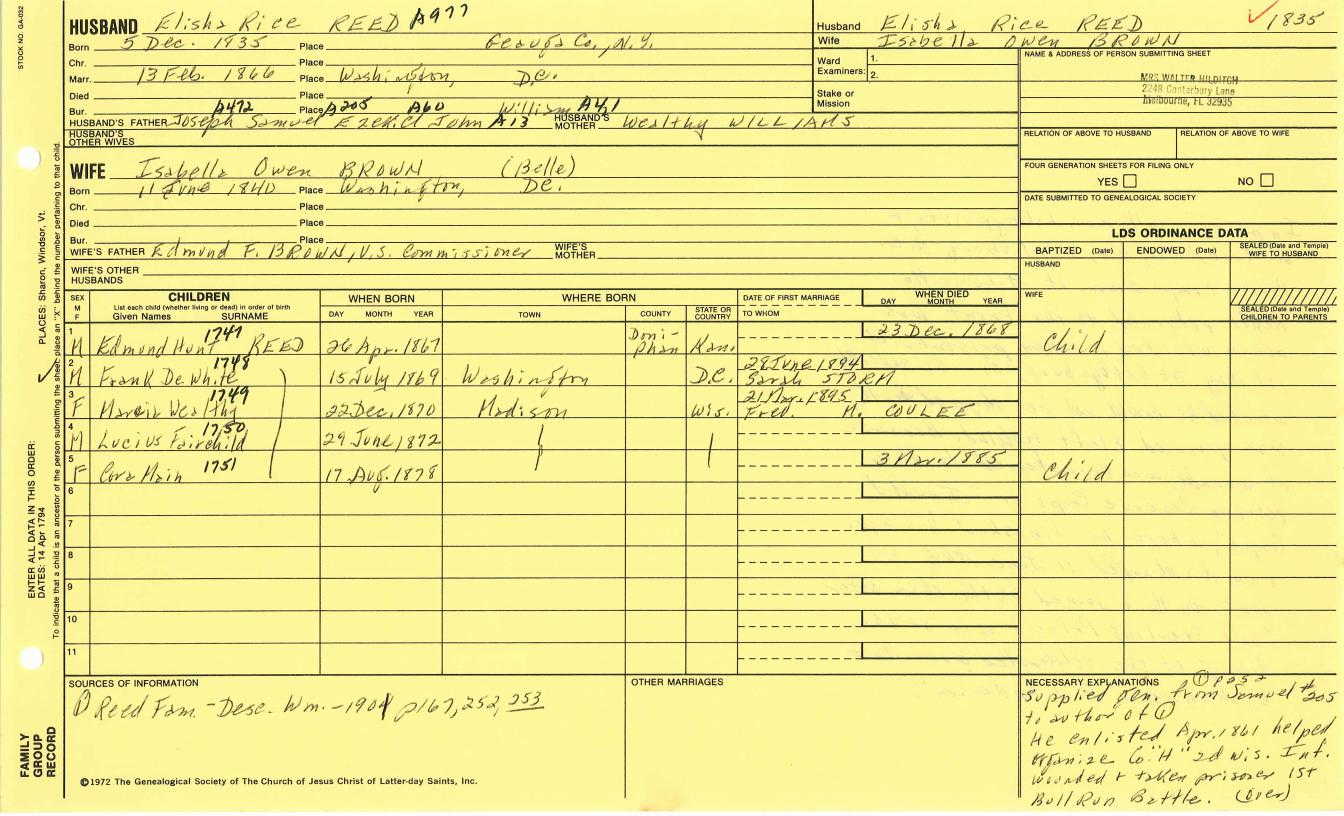 STOCK NO. GA-032
HUSBAND Elisha Rice REED A977
Born 5 Dec. 1835 Place Geauga Co., N.Y.
Chr. Place
Marr. 13 Feb. 1866 Place Washington, D.C.
Died Place
Bur. Place
A472 A205 A60 William A41
HUSBAND'S FATHER Joseph Samuel Ezekiel John A13 HUSBAND'S MOTHER Wealthy WILLIAMS
HUSBAND'S OTHER WIVES
WIFE Isabella Owen BROWN (Belle)
Born 11 June 1840 Place Washington, DC.
Chr. Place
Died Place
Bur. Place
WIFE'S FATHER Edmund F. BROWN, U.S. Commissioner WIFE'S MOTHER
WIFE'S OTHER HUSBANDS
Husband Elisha Rice REED 1835
Wife Isabella Owen BROWN
Ward Examiners: 1.
2.
Stake or Mission
NAME & ADDRESS OF PERSON SUBMITTING SHEET
MRS WALTER HILDITCH
2248 Canterbury Lane
Melbourne, FL 32935
RELATION OF ABOVE TO HUSBAND RELATION OF ABOVE TO WIFE
FOUR GENERATION SHEETS FOR FILING ONLY
YES NO
DATE SUBMITTED TO GENEALOGICAL SOCIETY
LDS ORDINANCE DATA
BAPTIZED (Date) ENDOWED (Date) SEALED (Date and Temple) WIFE TO HUSBAND
HUSBAND
WIFE
SEALED (Date and Temple) CHILDREN TO PARENTS
SEX M F CHILDREN List each child (whether living or dead) in order of birth Given Names SURNAME
WHEN BORN DAY MONTH YEAR
WHERE BORN TOWN COUNTY STATE OR COUNTRY
DATE OF FIRST MARRIAGE TO WHOM
WHEN DIED DAY MONTH YEAR
1 M Edmund Hunt 1747 REED 26 Apr. 1867 Doniphan Kan. 23 Dec. 1868 Child
2 M Frank De White 1748 15 July 1869 Washington D.C. 28 June 1894 Sarah STORM
3 F Marcia Wealthy 1749 22 Dec. 1870 Madison Wis. 21 Mar. 1895 Fred. M. COULEE
4 M Lucius Fairchild 1750 29 June 1872
5 F Cora Main 1751 17 Aug. 1878 3 Mar. 1885 Child
6
7
8
9
10
11
SOURCES OF INFORMATION
① Reed Fam. - Desc. Wm. - 1901 p167, 252, 253
OTHER MARRIAGES
NECESSARY EXPLANATIONS ① p252
Supplied Gen. from Samuel #205
to author of ①
He enlisted Apr. 1861 helped
organize Co "H" 2d Wis. Inf.
wounded & taken prisoner 1st
Bull Run Battle. (over)
©1972 The Genealogical Society of The Church of Jesus Christ of Latter-day Saints, Inc.
FAMILY GROUP RECORD
ENTER ALL DATA IN THIS ORDER:
DATES: 14 Apr 1794
PLACES: Sharon, Windsor, Vt.
To indicate that a child is an ancestor of the person submitting the sheet, place an "X" behind the number pertaining to that child.